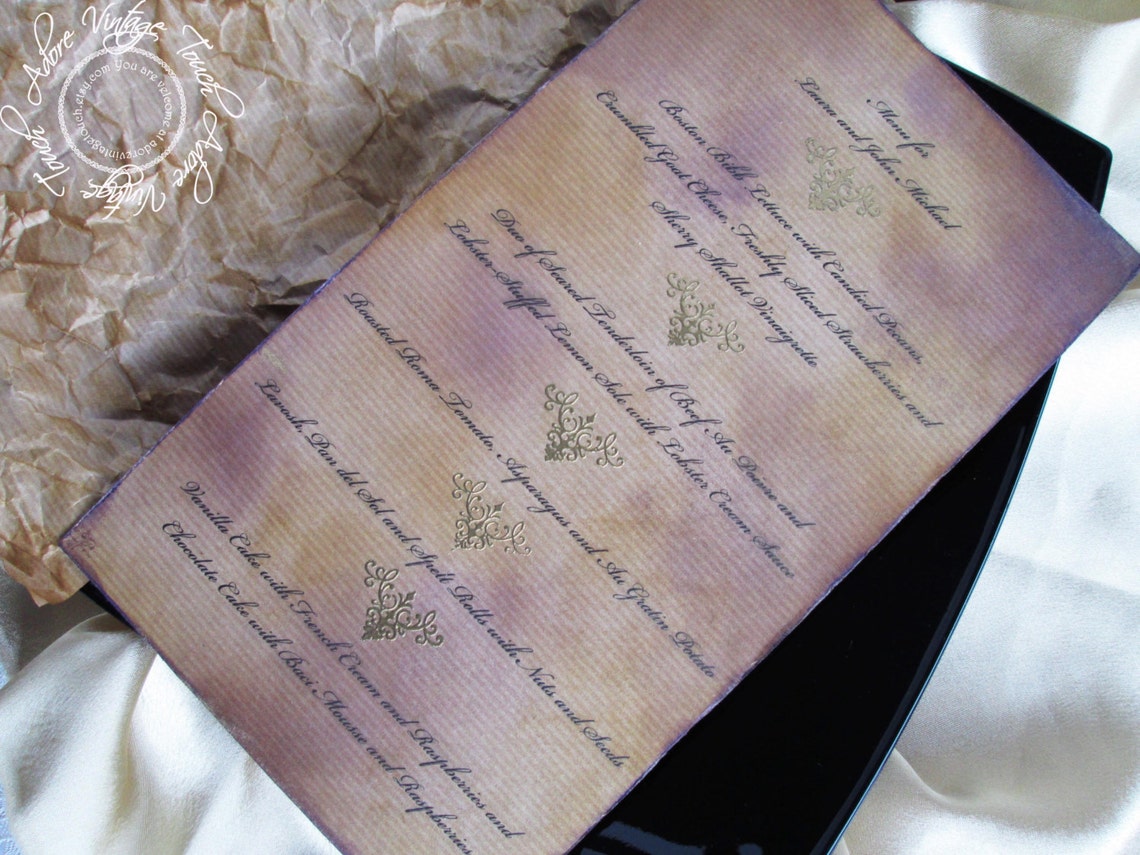 Menu for
Laura and John, Michael
Boston Bibb Lettuce with Candied Pecans,
Crumbled Goat Cheese, Freshly Sliced Strawberries and
Sherry Shallot Vinaigrette
Duo of Seared Tenderloin of Beef Au Poivre and
Lobster-Stuffed Lemon Sole with Lobster Cream Sauce
Roasted Roma Tomato, Asparagus and Au Gratin Potato
Lavosh, Pan del Sol and Spelt Rolls with Nuts and Seeds
Vanilla Cake with French Cream and Raspberries and
Chocolate Cake with Baci Mousse and Raspberries
Adore Vintage Touch Adore Vintage Touch
You are welcome at adorevintagetouch.etsy.com